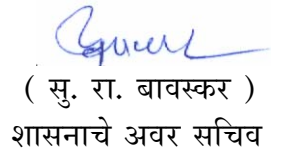 ( सु. रा. बावस्कर )
शासनाचे अवर सचिव